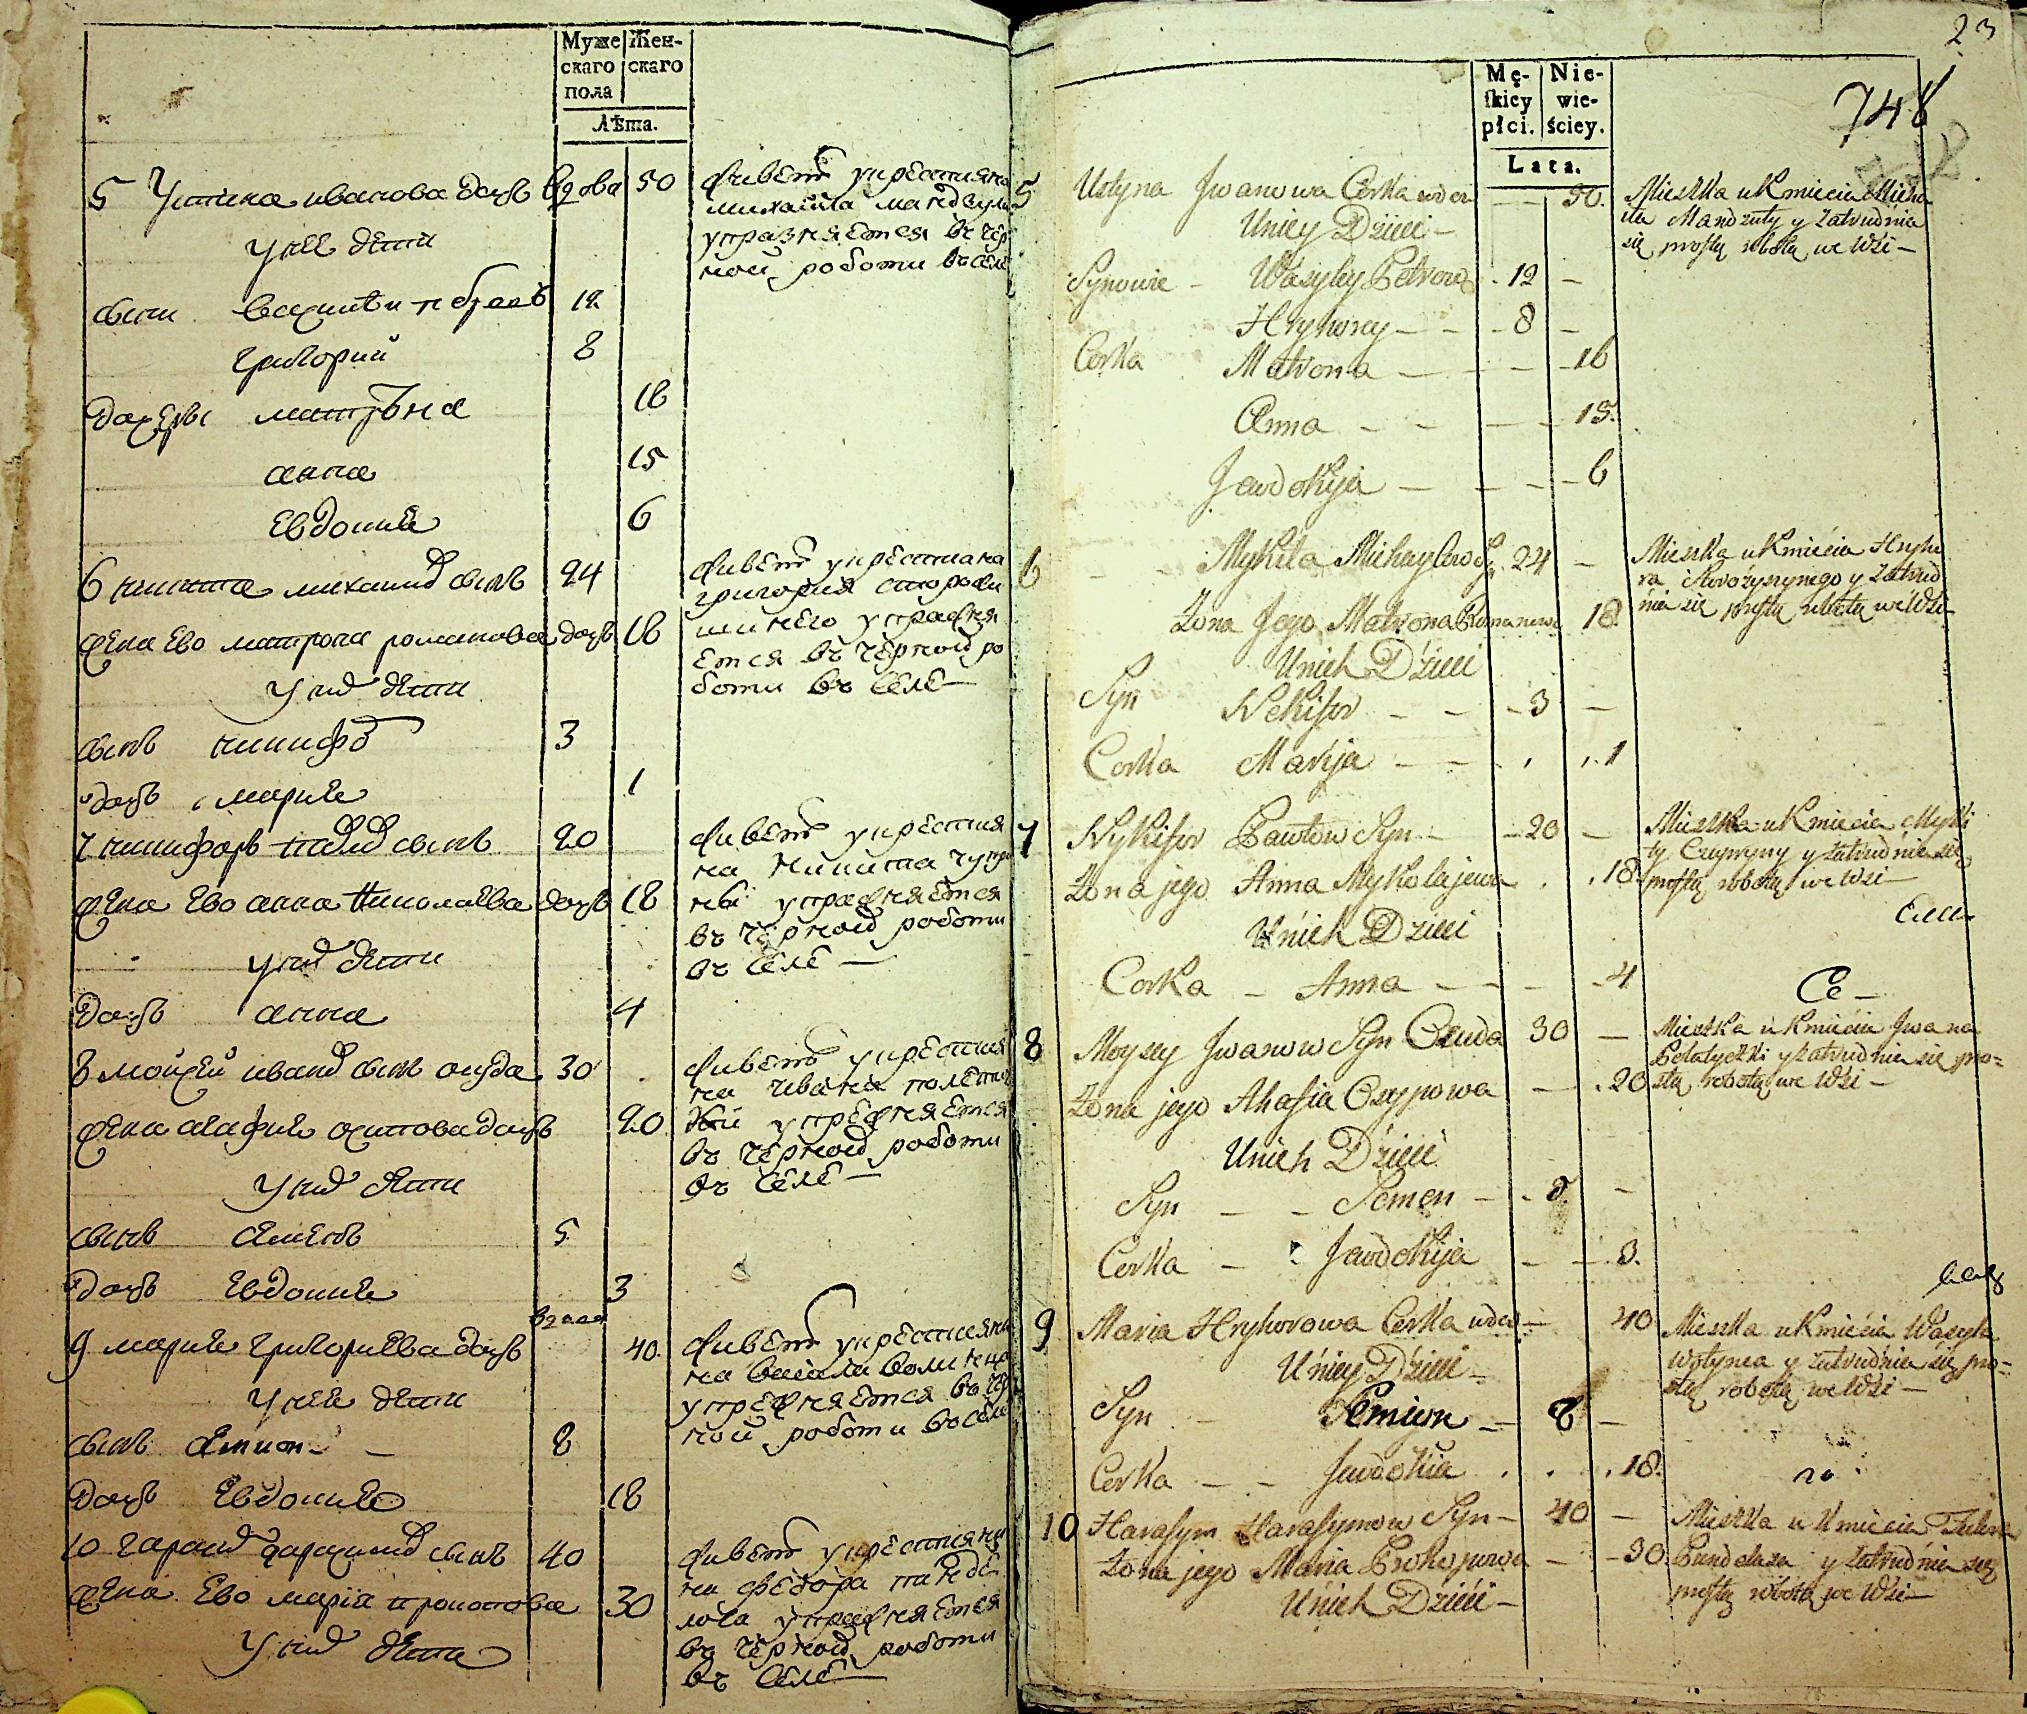 Муже
скаго
пола
Жен-
скаго
Лѣта.
5 Устина иванова дочь вдова 50 живетъ укрестияна
михаила мандзули
упразняется въ чер
ной роботи въ селе
унее дети
сыни василѣи петровъ 12
григорий 8
дочеры матрона 16
анна 15
Евдокия 6
6 никита михаило сынъ 24 живетъ укрестиана
григория сторожи
шинего упражня
ется въ черной ро
боти въ селе
жена Ево матрона романова дочь 18
у них дети
сынъ никифор 3
дочь мария 1
7 никифоръ павло сынъ 20 живетъ укрестия
на никита чупри
ны упражняется
въ черной роботи
въ селе
жена Ево анна Николаева дочь 18
у них дети
дочь анна 4
8 мойсей ивано сынъ 30 живетъ укрестия
на ивана
упражняется
въ черной роботи
въ селе
жена агафия осипова дочь 20
у них дети
сынъ семенъ 5
дочь Евдокия 3
9 мария григориева дочь вдова 40 живетъ укрестияни
на васили волинца
упражняется въ чер
ной роботи въ селе
у нее дети
сынъ семион 8
дочь Евдокия 18
10 гарасим гарасимо сынъ 40 живетъ укрестияни
на федора
упражняется
въ черной роботи
въ селе
жена Ево мария прокопова 30
у них дети
23
748
Mę-
skiey
płci.
Nie-
wie-
ściey.
Lata.
5 Ustyna Jwanowa Corka wdow — 50. Mieszka u Kmiecia Micha
iła Mandzuły y zatrudnia
się prostą robotą we Wsi —
U niey Dzieci —
Synowie - Wasyley Petrow . 12 —
Hryhorey — - 8 —
Corka Matrona — 16
Anna — 15.
Jewdokija — 6
6 Mykita Michayłow Syn 24 — Mieszka u Kmiecia Hryho
ra Storożyszynego y zatrud
nia się prostą robotą we Wsi —
Zona Jego Matrona Romanowa 18
U nich Dzieci
Syn Nekifor — - 3 —
Corka Marija — . . 1
7 Nykifor Pawłow Syn - - 20 — Mieszka u Kmiecia Myki
ty Czupryny y zatrudnia się
prostą robotą we Wsi —
Zona jego Anna Mykołajewa . . 18.
U nich Dzieci
Corka - Anna — - 4
8 Moyzey Jwanow Syn 30 — Mieszka u Kmiecia Jwana
y zatrudnia się pro-
stą robotą we Wsi —
Zona jego Ahafia Osypowa — . 20
U nich Dzieci
Syn — - Semen — . 5. —
Corka — Jewdokija — 3.
9 Maria Hryhorowa Corka wdow — 40 Mieszka u Kmiecia Wasyla
Wołynca y zatrudnia się pro-
stą robotą we Wsi —
U niey Dzieci —
Syn - Semion — 8 —
Corka — - Jewdokia . . . 18.
10 Harasym Harasymow Syn — 40 — Mieszka u Kmiecia
y zatrudnia się
prostą robotą we Wsi —
Zona jego Maria Prokopowa — - 30
U nich Dzieci —